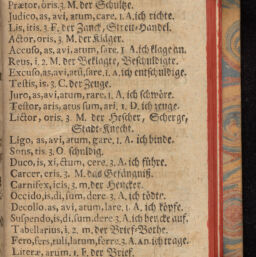 Prætor, oris, 3. M. der Schultze.
Judico, as, avi, atum, care, 1. A. ich richte.
Lis, itis, 3. F. der Zanck, Streit-Handel.
Actor, oris, 3. M. der Kläger.
Accuso, as, avi, atum, sare, 1. A. ich klage an.
Reus, i, 2. M. der Beklagte, Beschuldigte.
Excuso, as, avi, atũ, sare, 1. A. ich entschuldige.
Testis, is, 3. C. der Zeuge.
Juro, as, avi, atum, rare, 1. A. ich schwöre.
Testor, aris, atus sum, ari, 1. D. ich zeuge.
Lictor, oris, 3. M. der Hescher, Scherge,
Stadt-Knecht.
Ligo, as, avi, atum, gare, 1. A. ich binde.
Sons, tis, 3. O. schuldig.
Duco, is, xi, ctum, cere, 3. A. ich führe.
Carcer, eris, 3. M. das Gefängnüß.
Carnifex, icis, 3. m. der Hencker.
Occido, is, di, sum, dere, 3. A. ich tödte.
Decollo, as, avi, atum, lare, 1. A. ich köpfe.
Suspendo, is, di, sum, dere, 3. A. ich hencke auf.
Tabellarius, i, 2. m. der Brief-Bothe.
Fero, fers, tuli, latum, ferre, 3. A. an. ich trage.
Literæ, arum, 1. F. der Brief.